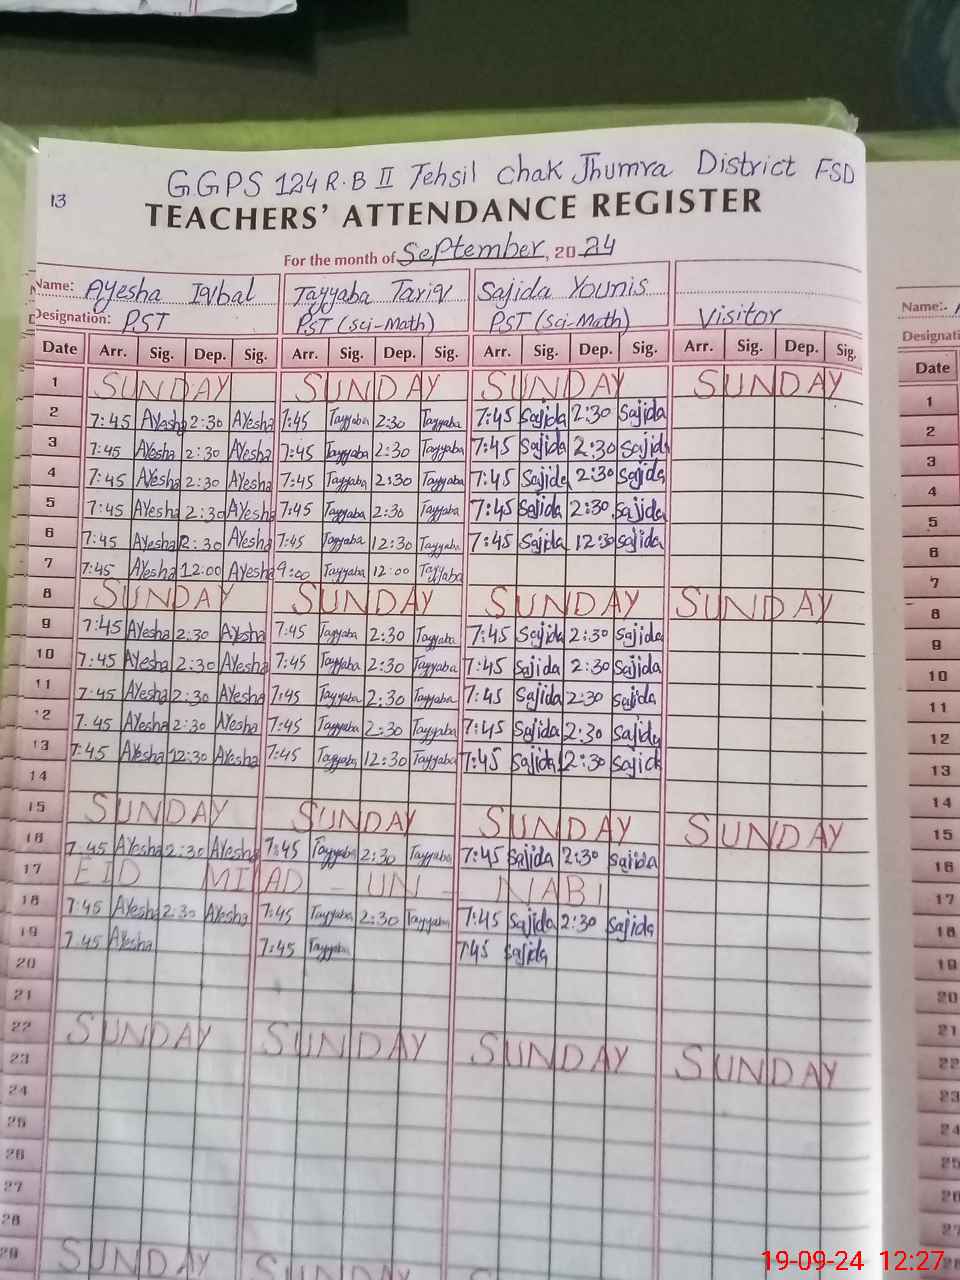 G.G.P.S 124 R.B II Tehsil Chak Jhumra District FSD
13
TEACHERS' ATTENDANCE REGISTER
For the month of September, 2024
Name: Ayesha Iqbal Tayyaba Tariq Sajida Younis
Designation: PST PST (Sci-Math) PST (Sci-Math) Visitor
Date Arr. Sig. Dep. Sig. Arr. Sig. Dep. Sig. Arr. Sig. Dep. Sig. Arr. Sig. Dep. Sig.
1 SUNDAY SUNDAY SUNDAY SUNDAY
2 7:45 Ayesha 2:30 Ayesha 7:45 Tayyaba 2:30 Tayyaba 7:45 Sajida 2:30 Sajida
3 7:45 Ayesha 2:30 Ayesha 7:45 Tayyaba 2:30 Tayyaba 7:45 Sajida 2:30 Sajida
4 7:45 Ayesha 2:30 Ayesha 7:45 Tayyaba 2:30 Tayyaba 7:45 Sajida 2:30 Sajida
5 7:45 Ayesha 2:30 Ayesha 7:45 Tayyaba 2:30 Tayyaba 7:45 Sajida 2:30 Sajida
6 7:45 Ayesha 12:30 Ayesha 7:45 Tayyaba 12:30 Tayyaba 7:45 Sajida 12:30 Sajida
7 7:45 Ayesha 12:00 Ayesha 9:00 Tayyaba 12:00 Tayyaba
8 SUNDAY SUNDAY SUNDAY SUNDAY
9 7:45 Ayesha 2:30 Ayesha 7:45 Tayyaba 2:30 Tayyaba 7:45 Sajida 2:30 Sajida
10 7:45 Ayesha 2:30 Ayesha 7:45 Tayyaba 2:30 Tayyaba 7:45 Sajida 2:30 Sajida
11 7:45 Ayesha 2:30 Ayesha 7:45 Tayyaba 2:30 Tayyaba 7:45 Sajida 2:30 Sajida
12 7:45 Ayesha 2:30 Ayesha 7:45 Tayyaba 2:30 Tayyaba 7:45 Sajida 2:30 Sajida
13 7:45 Ayesha 12:30 Ayesha 7:45 Tayyaba 12:30 Tayyaba 7:45 Sajida 12:30 Sajida
14
15 SUNDAY SUNDAY SUNDAY SUNDAY
16 7:45 Ayesha 2:30 Ayesha 7:45 Tayyaba 2:30 Tayyaba 7:45 Sajida 2:30 Sajida
17 EID MILAD - UN - NABI
18 7:45 Ayesha 2:30 Ayesha 7:45 Tayyaba 2:30 Tayyaba 7:45 Sajida 2:30 Sajida
19 7:45 Ayesha 7:45 Tayyaba 7:45 Sajida
20
21
22 SUNDAY SUNDAY SUNDAY SUNDAY
23
24
25
26
27
28
29 SUNDAY SUNDAY
Name:-
Date
1
2
3
4
5
6
7
8
9
10
11
12
13
14
15
16
17
18
19
20
21
22
23
24
25
26
27
19-09-24 12:27